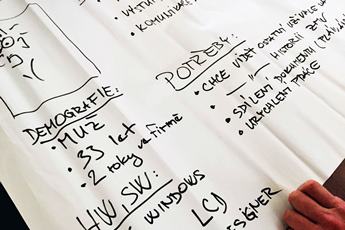 KOMUNIKAC
DEMOGRAFIE:
• MUŽ
• 33 let
• 2 roky ve firmě
POTŘEBY:
• CHCE VIDĚT OSTATNÍ
• —"— HISTORII ZMĚN
• SDÍLENÍ DOKUMENTŮ
• URYCHLENÍ PRÁCE
HW, SW:
• WINDOWS
LCD
DESIGNER